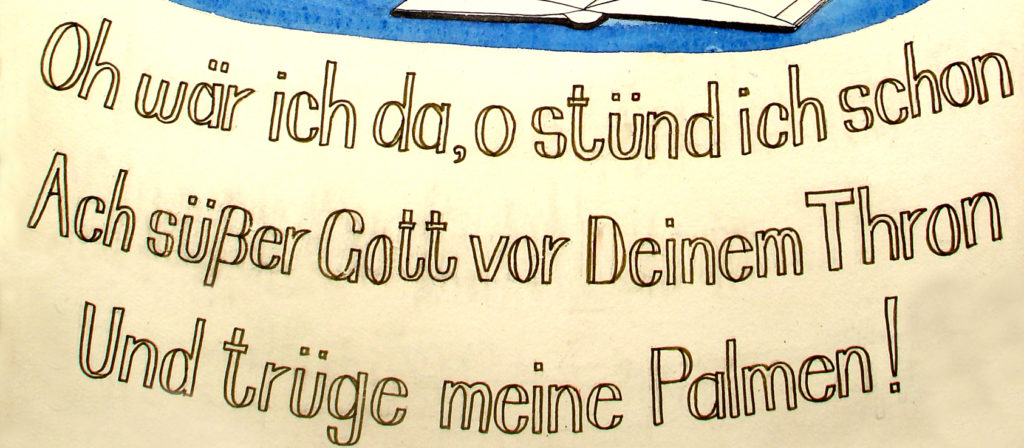 Oh wär ich da, o stünd ich schon
Ach süßer Gott vor Deinem Thron
Und trüge meine Palmen!